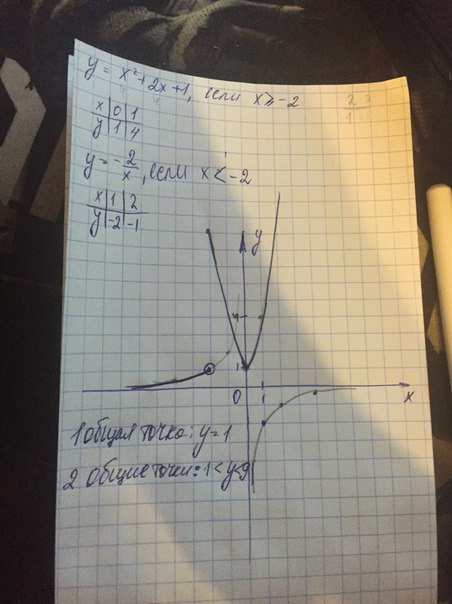 y = x²+2x+1, если x≥-2
x | 0 | 1
y | 1 | 4
y = -2/x, если x < -2
x | 1 | 2
y | -2 | -1
y
4
1
0 1 x
1 общая точка: y=1
2 общие точки: 1<y<9